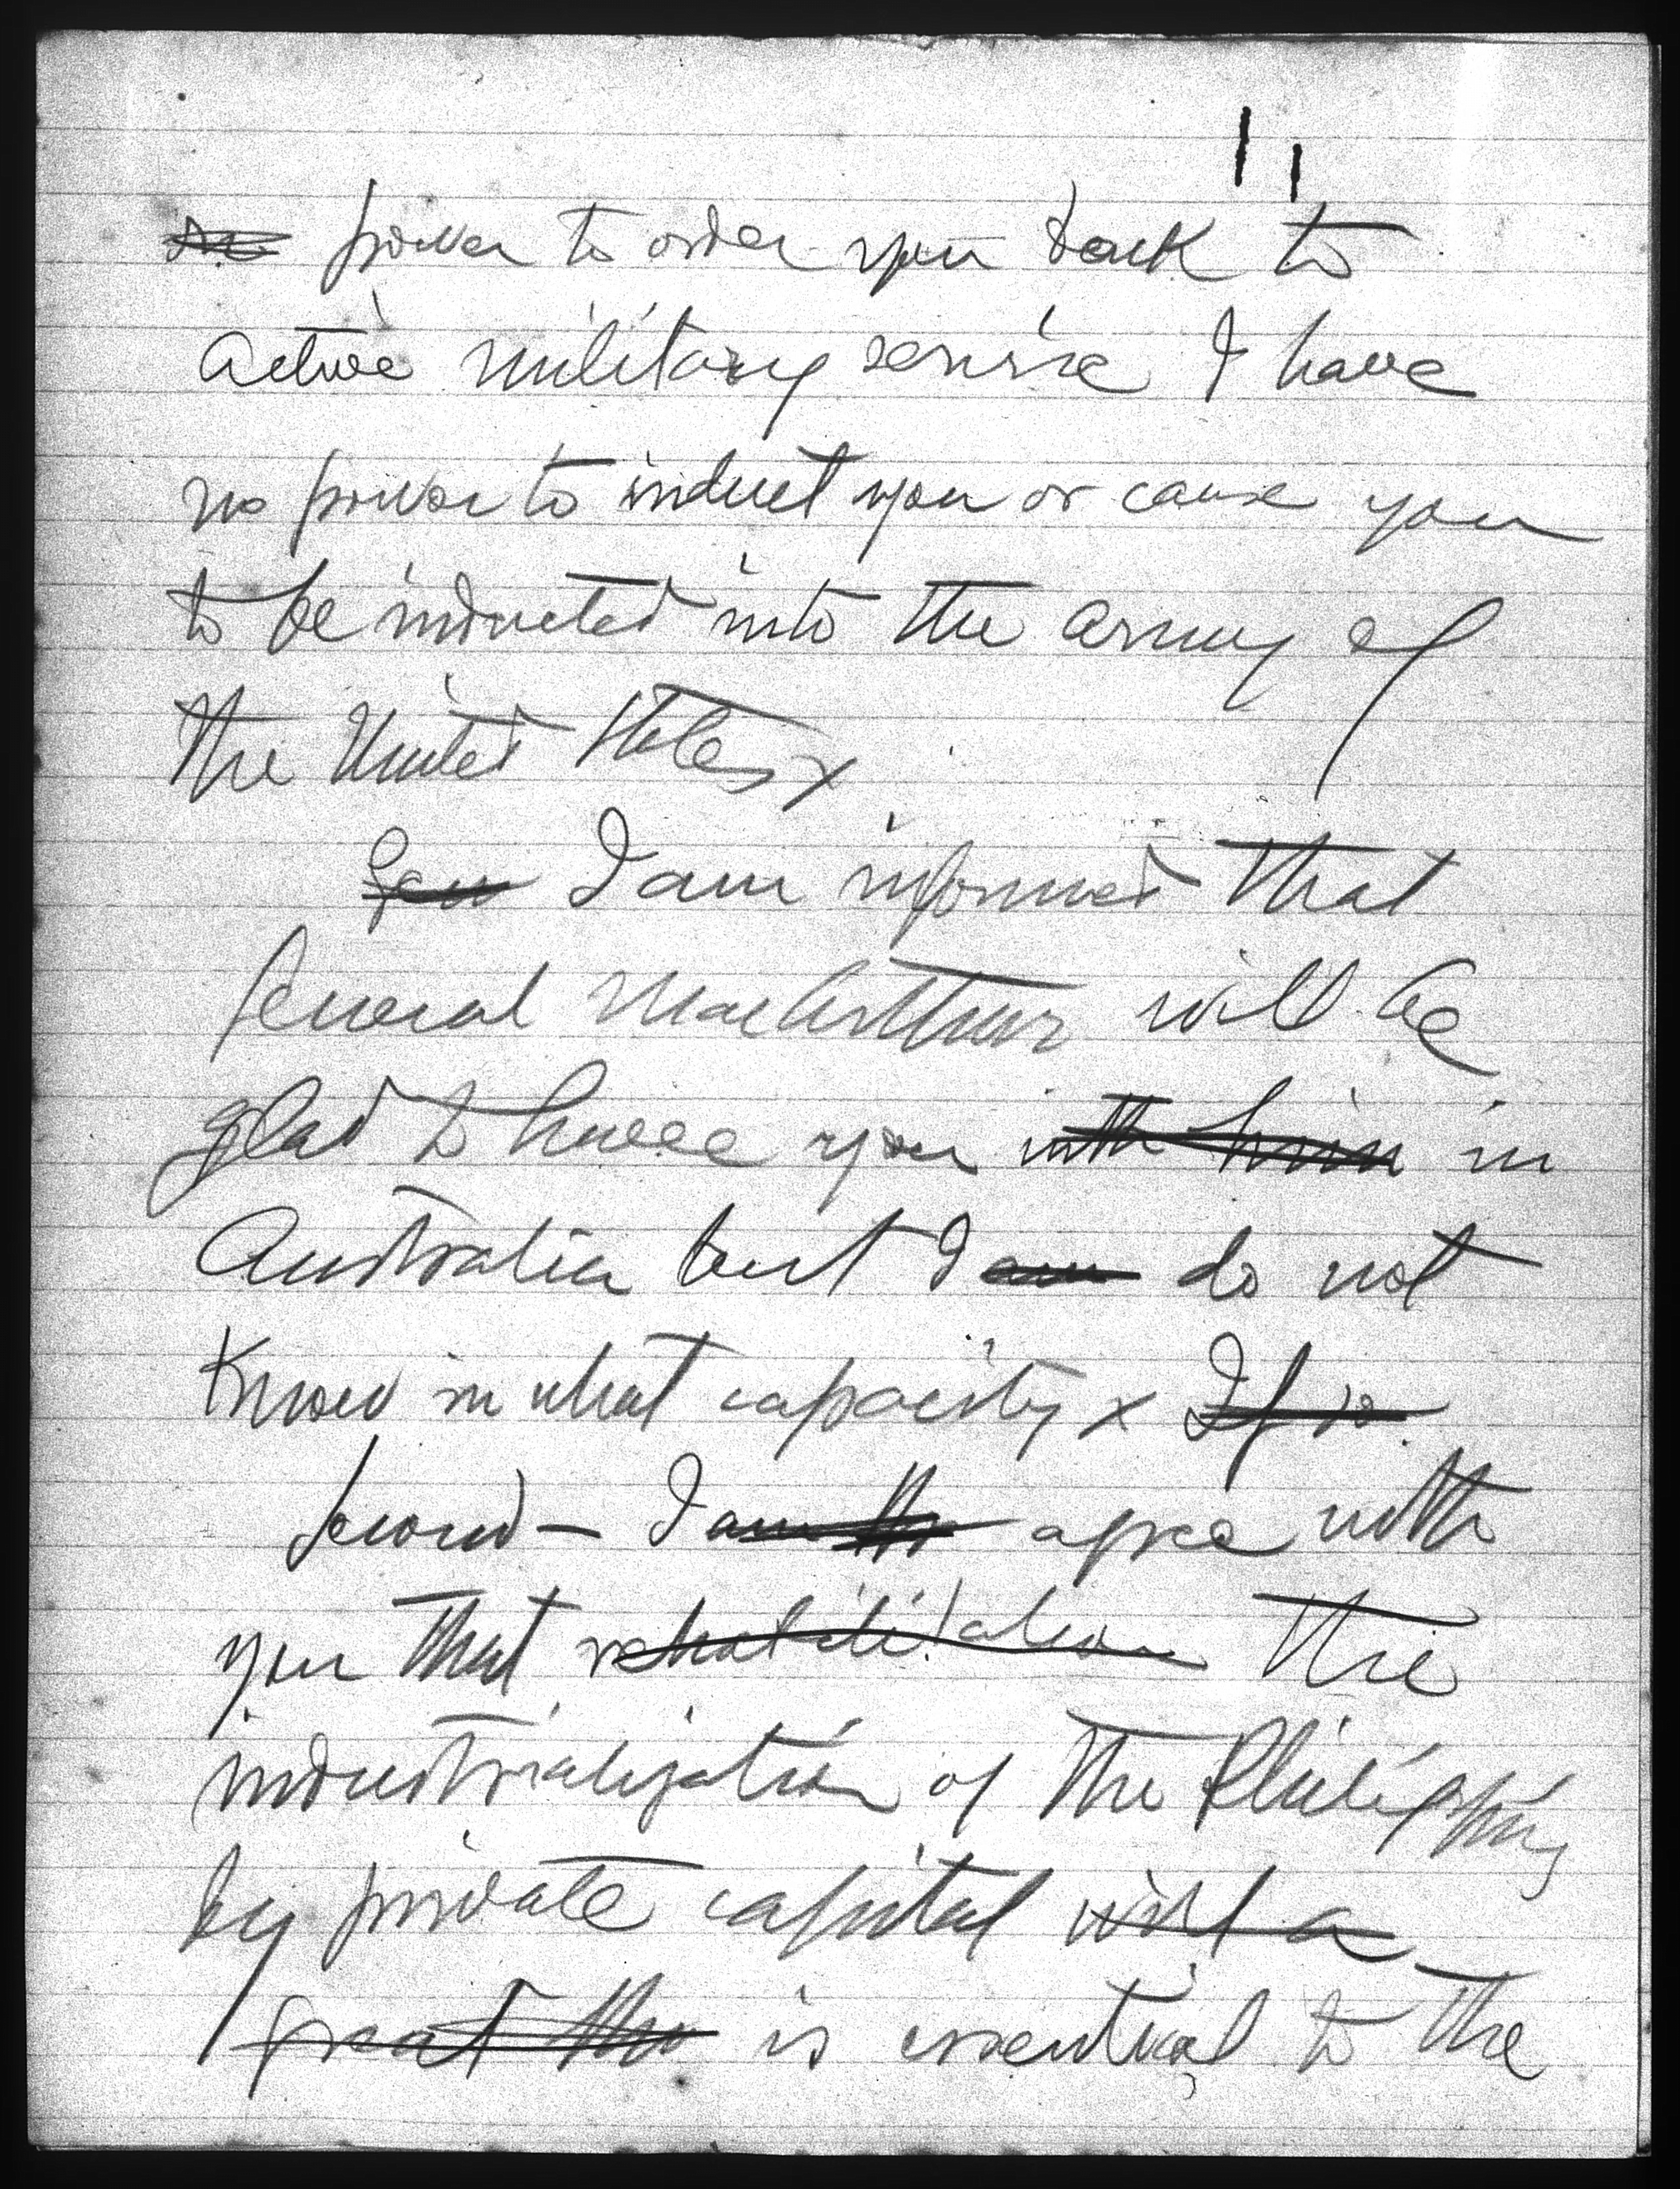 11
power to order you back to
active military service I have
no power to induct you or cause you
to be inducted into the army of
the United States x
Gen I am informed that
General MacArthur will be
glad to have you with him in
Australia but I am do not
know in what capacity x If so
Second – I am the agree with
you that rehabilitation the
industrialization of the Philippines
by private capital will a
great the is essential to the